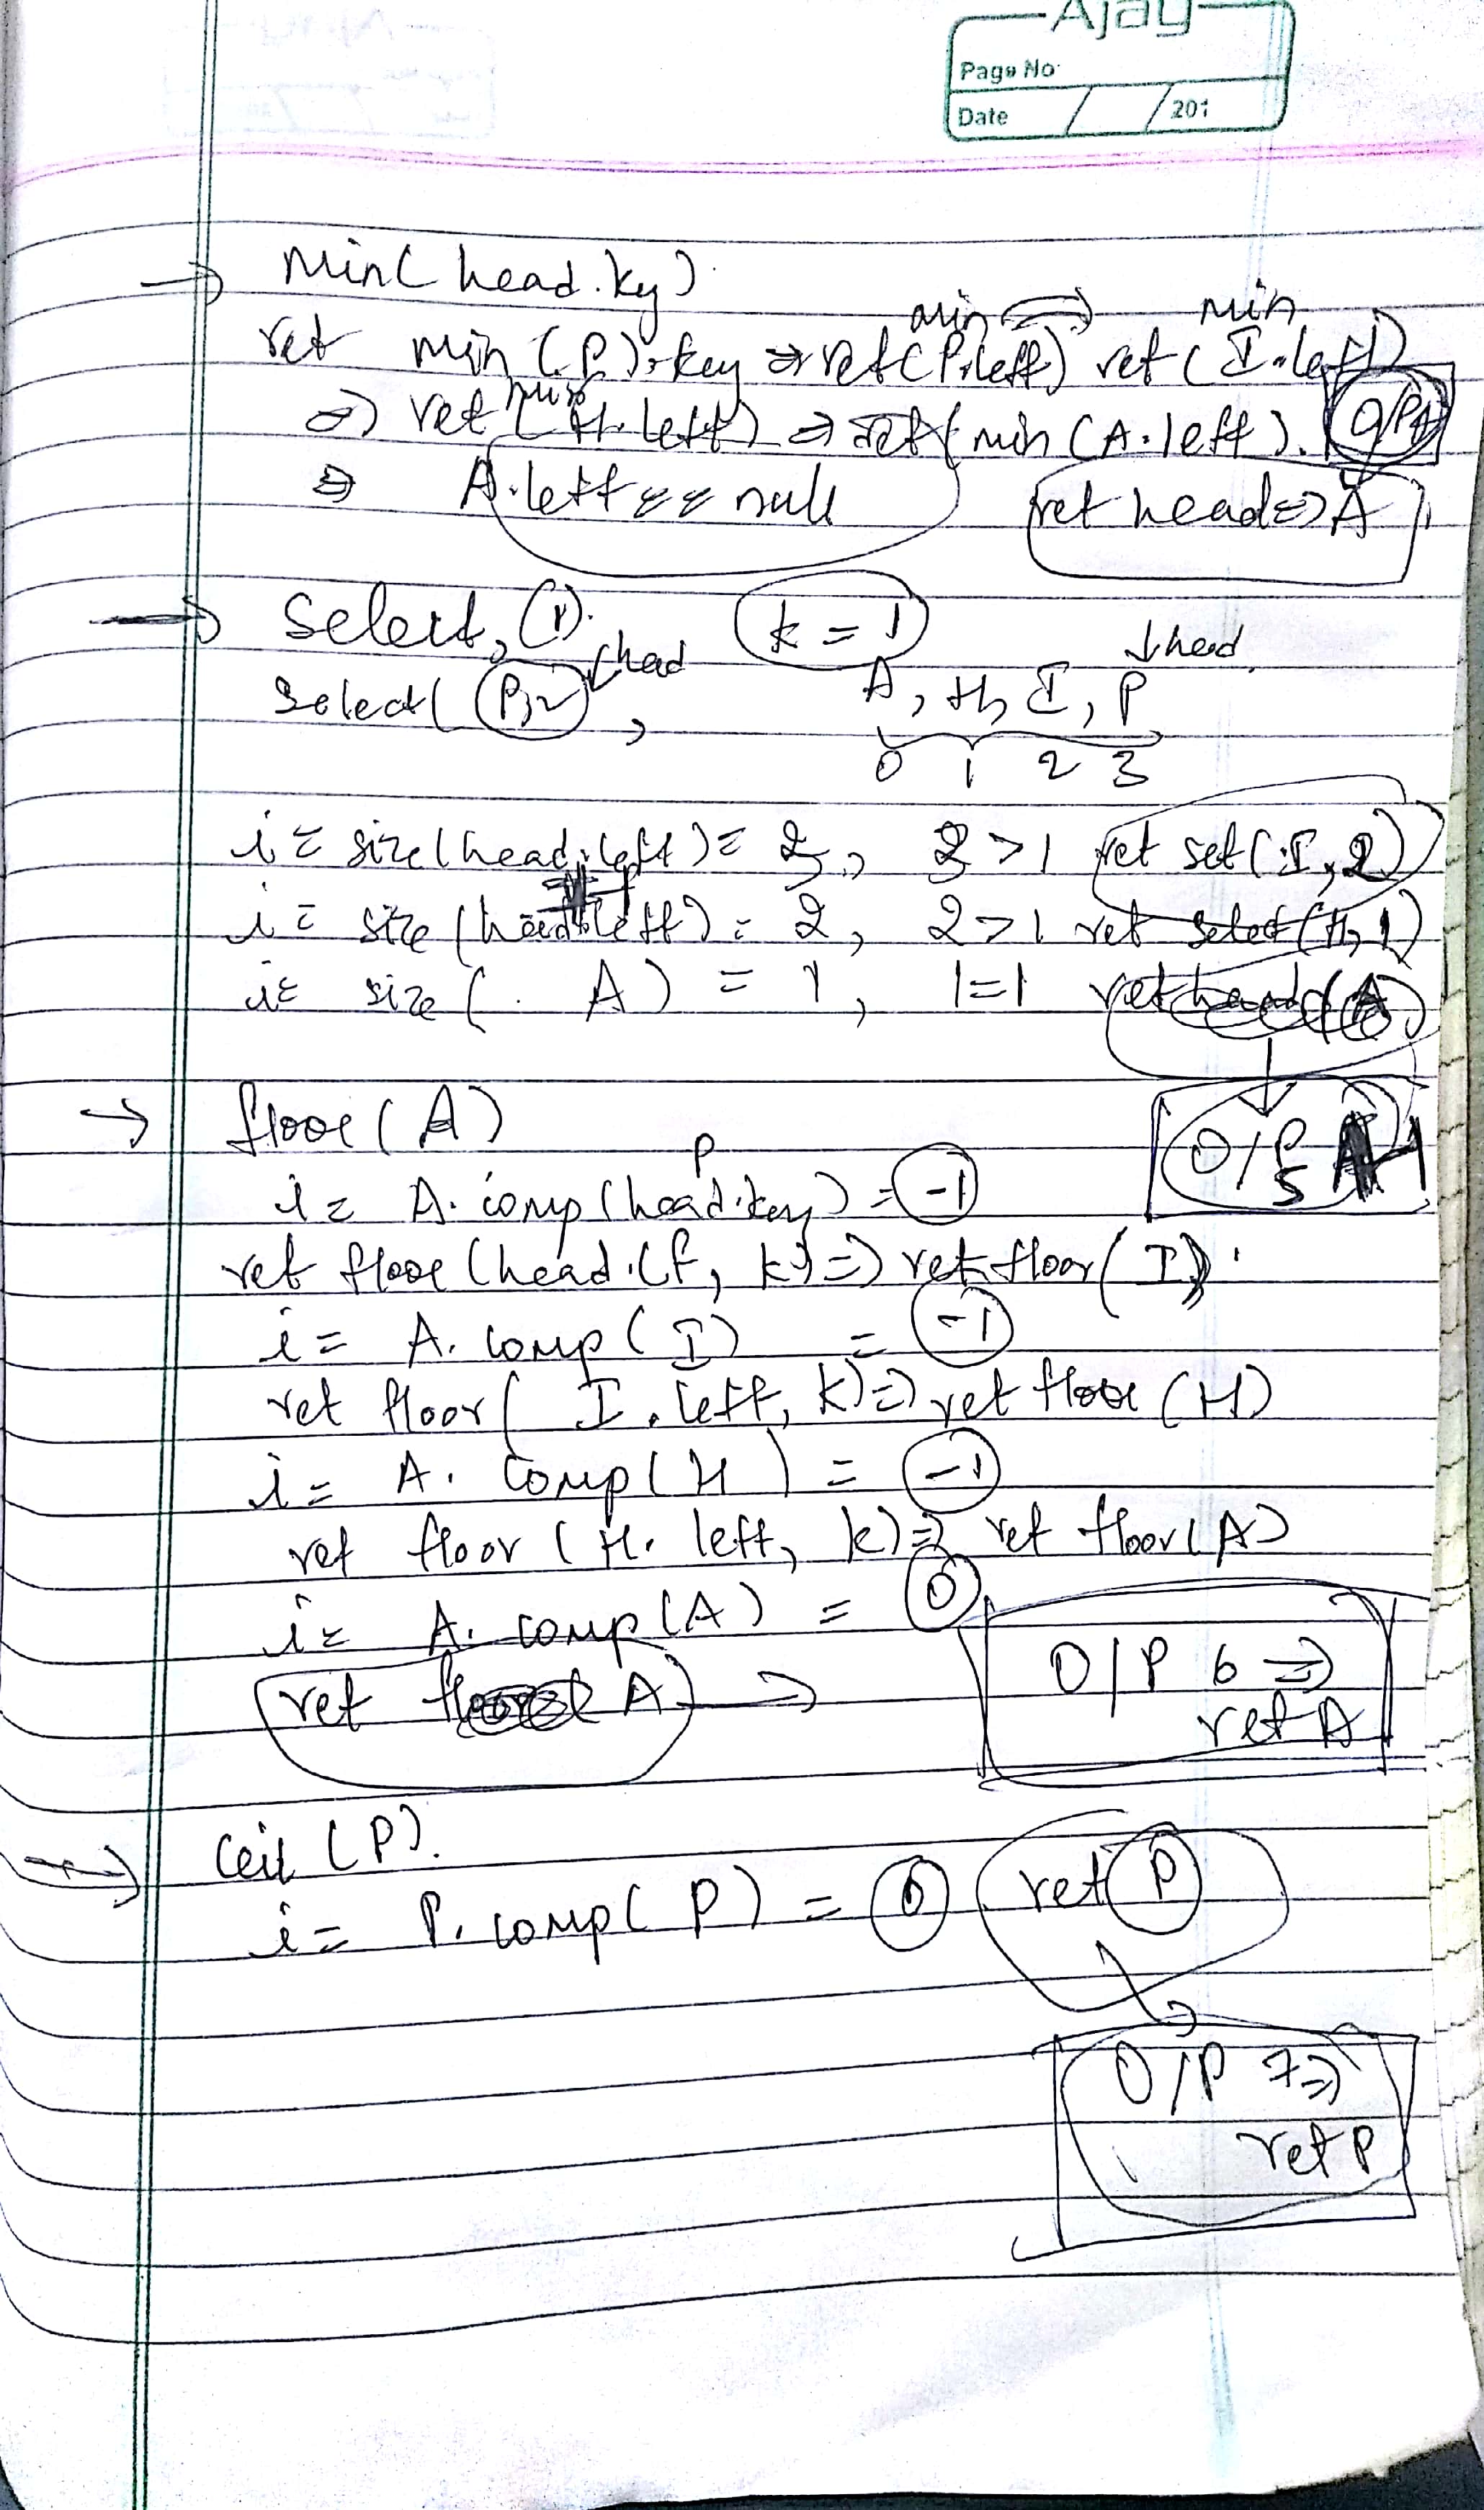 Ajay
Page No
Date / / 201
→ min( head.key)
ret min (P).key ⇒ ret min (P.left) ⇒ ret min (I.left)
⇒ ret min (H.left) ⇒ ret min (A.left). O/P4
⇒ A.left == null ret head ⇒ A
→ select (1). k = 1
↓head
select( P, 2 ↙head , A, H, I, P
0 1 2 3
i = size(head.left) = 3, 3 > 1 ret sel(I, 2)
i = size (head.left) = 2, 2 > 1 ret select (H, 1)
i = size ( A) = 1, 1=1 ret head (A)
→ floor (A)
O/P 5
P
i = A. comp (head.key) = -1
ret floor (head.lf, k) ⇒ ret floor( I).
i = A. comp ( I) = -1
ret floor( I. left, k) ⇒ ret floor (H)
i = A. comp ( H ) = -1
ret floor ( H. left, k) ⇒ ret floor (A)
i = A. comp (A) = 0
ret A → O/P 6 ⇒
ret A
→ Ceil (P).
i = P. comp( P) = 0 ret P
O/P 7 ⇒
ret P